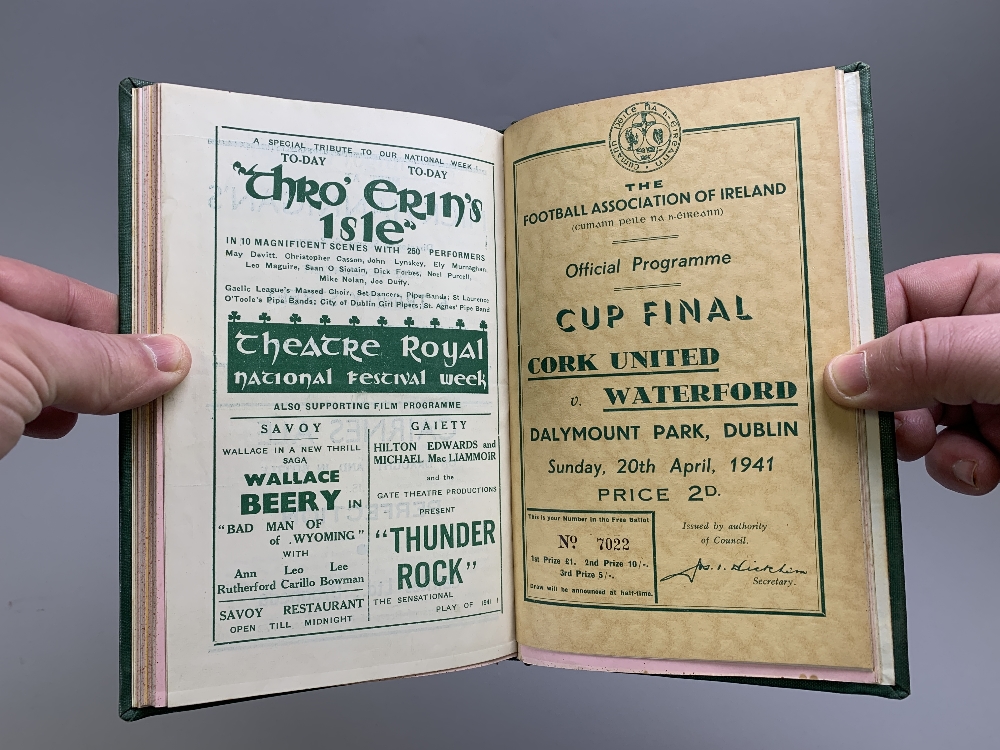 A SPECIAL TRIBUTE TO OUR NATIONAL WEEK
TO-DAY TO-DAY
"Thro' Erin's
Isle"
IN 10 MAGNIFICENT SCENES WITH 250 PERFORMERS
May Davitt, Christopher Casson, John Lynskey, Ely Murnaghan,
Leo Maguire, Sean O Siotain, Dick Forbes, Noel Purcell,
Mike Nolan, Joe Duffy.
Gaelic League's Massed Choir, Set Dancers, Pipe Bands; St Laurence
O'Toole's Pipe Bands; City of Dublin Girl Pipers; St. Agnes' Pipe Band
Theatre Royal
national Festival week
ALSO SUPPORTING FILM PROGRAMME
SAVOY
WALLACE IN A NEW THRILL
SAGA
WALLACE
BEERY IN
"BAD MAN OF
of WYOMING"
WITH
Ann Leo Lee
Rutherford Carillo Bowman
SAVOY RESTAURANT
OPEN TILL MIDNIGHT
GAIETY
HILTON EDWARDS and
MICHAEL Mac LIAMMOIR
and the
GATE THEATRE PRODUCTIONS
PRESENT
"THUNDER
ROCK"
THE SENSATIONAL
PLAY OF 1941 !
CUMANN PEILE NA h-ÉIREANN
THE
FOOTBALL ASSOCIATION OF IRELAND
(CUMANN PEILE NA h-ÉIREANN)
Official Programme
CUP FINAL
CORK UNITED
v. WATERFORD
DALYMOUNT PARK, DUBLIN
Sunday, 20th April, 1941
PRICE 2D.
This is your Number in the Free Ballot
No 7022
1st Prize £1. 2nd Prize 10/-.
3rd Prize 5/-.
Draw will be announced at half-time.
Issued by authority
of Council.
Jos. I. Wickham
Secretary.